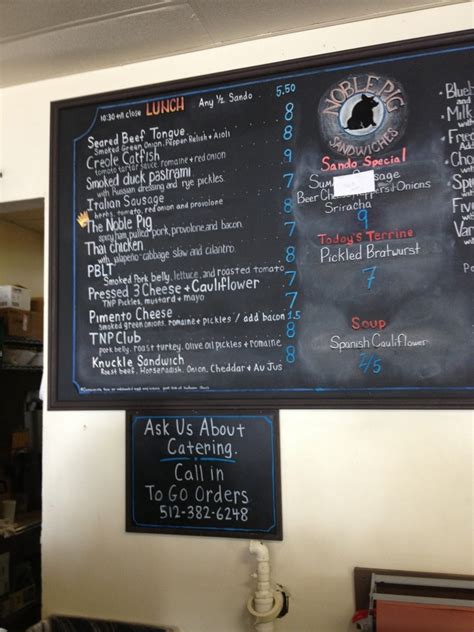 10:30 till close LUNCH Any ½ Sando 5.50
Seared Beef Tongue 8
Smoked Green Onion, Pepper Relish + Aioli
Creole Catfish 8
tomato tartar sauce, romaine + red onion
Smoked duck pastrami 9
with Russian dressing and rye pickles.
Italian Sausage 8
herbs, tomato, red onion and provolone
The Noble Pig 8
spicy ham, pulled pork, provolone, and bacon.
Thai chicken 7
with jalapeño-cabbage slaw and cilantro.
PBLT 8
Smoked Pork belly, lettuce, and roasted tomato
Pressed 3 Cheese + Cauliflower 7
TNP Pickles, mustard + mayo
Pimento Cheese 7
Smoked green onions, romaine + pickles / add bacon 1.5
TNP Club 8
pork belly, roast turkey, Olive oil pickles + romaine
Knuckle Sandwich 8
Roast Beef, Horseradish, Onion, Cheddar + Au Jus
NOBLE PIG
SANDWICHES
Sando Special
Sausage
Beer Onions
Sriracha
9
Today's Terrine
Pickled Bratwurst
7
Soup
Spanish Cauliflower
2/5
Milk
with
Ask Us About
Catering.
Call in
To Go Orders
512-382-6248